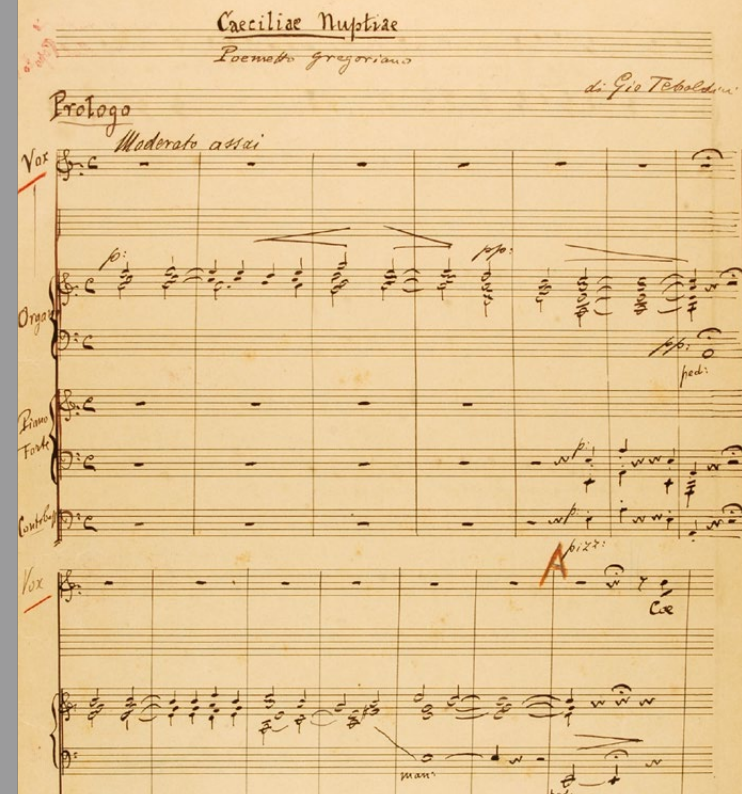 Caeciliae Nuptiae
Poemetto gregoriano
di Gio Tebaldini
Prologo
Moderato assai
Vox
p:
pp:
Organ
pp:
ped:
Piano
Forte
p:
p:
pizz:
A
Vox
Cae
man: